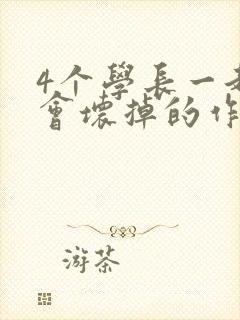 4个學長一
會壞掉的作
游茶